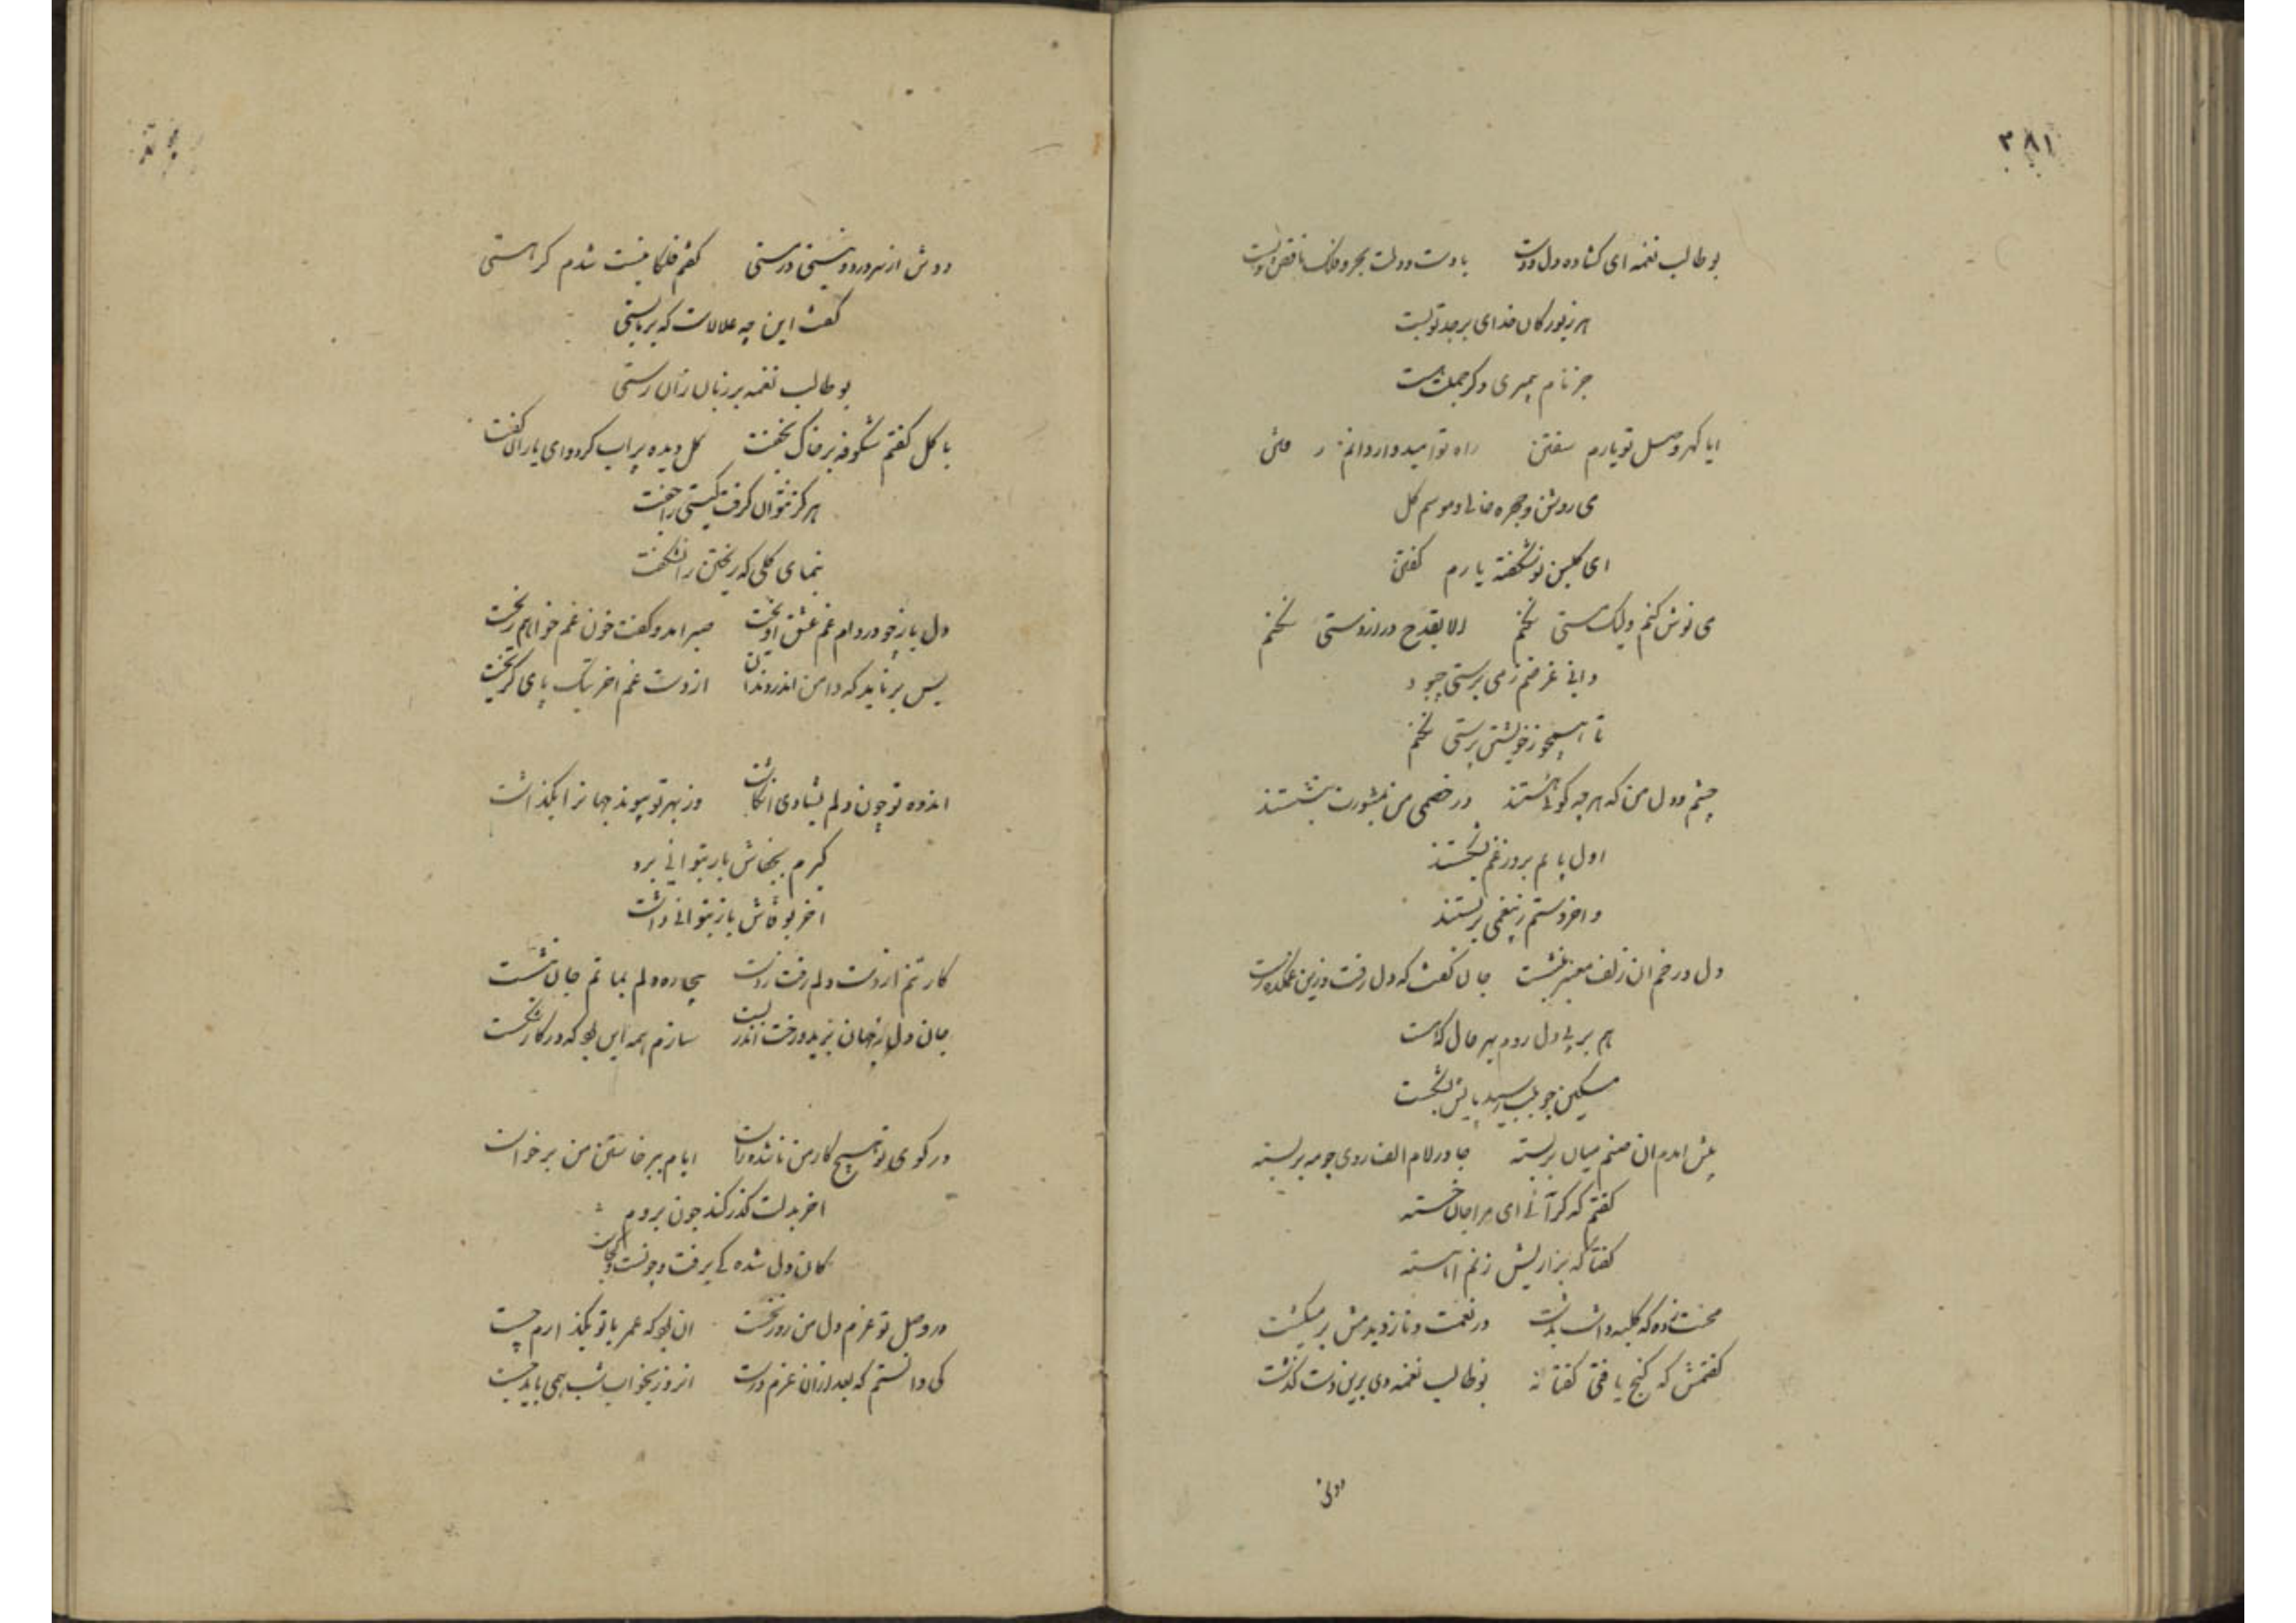 ۳۸۱
بوطالب نغمه ای کشاده دل و دست با دست و دلت بحر و فلک ناقص و پست
هر زیور کان خدای بر جد تو بست
جز نام پیمبری دگر جمله هست
ایا گهر وصل تو یارم سفتن راه تو امید وار دانم
می روشن و چهره خالی و موسم گل
ای گلبن نوشکفته یارم گفتن
می نوش کنم ولیک مستی نکنم الا بقدح دراز دستی نکنم
دانی غرضم ز می پرستی چبود
تا همچو تو خویشتن پرستی نکنم
چشم و دل من که هر چه گوئی هستند در خصمی من بمشورت بنشستند
اول پایم بروز غم بشکستند
و اخر دستم ز بیغمی بربستند
دل در خم ان زلف معنبر بنشست جان گفت که دل رفت و زین غمکده رست
هم بر پی دل روم بهر حال که هست
مسکین چو بلب رسید پایش بشکست
پیش امدم ان صنم میان بربسته جا در لام الف روی چو مه بربسته
گفتم که کرائی ای مرا جان خسته
گفتا که ترا لیش زنم اهسته
محنت زده که کلبه داشت بدشت در نعمت و ناز دیدمش برمیگشت
گفتمش که گنج یافتی گفتا نه بوطالب نغمه دی برین دشت گذشت
دوش از سر درد نیستی در مستی گفتم فلکا نیست شدم گر هستی
گفت این چه علالات که بربستی
بوطالب نغمه بر زبان ران رستی
با گل گفتم شکوفه بر خاک بخفت گل دیده پر اب کرد و ای یاران گفت
هرگز نتوان گرفت گیتی را جفت
بنمای گلی که ریختن را نشکفت
دل باز چو در دام غم عشق اویخت صبر امد و گفت خون غم خواهم ریخت
بس بر نامد که دامن اندر دندان از دست غم اخر بتک پای گریخت
اندوه تو چون دلم بشادی انگاشت وز بهر تو پیوند جهانرا بگذاشت
گیرم بجفاش بار بتوانی برد
اخر بوفاش باز بتوانی داشت
کار تنم از دست دلم رفت ز دست بیچاره دلم بماتم جان بنشست
جان دل ز جهان ببرید و رخت اندر بست سازم همه این بد که در کار شکست
در کوی تو هیچ کار من ناشده راست ایام ببر خاستن من برخاست
اخر بدلت گذر کند چون بروم
کان دل شده کی برفت و چونست و کجاست
در وصل تو عزم دل من روز نخست ان بد که عمر با تو بگذارم چست
کی دانستم که بعد ازان عزم درست انروز بخواب شب همی باید جست